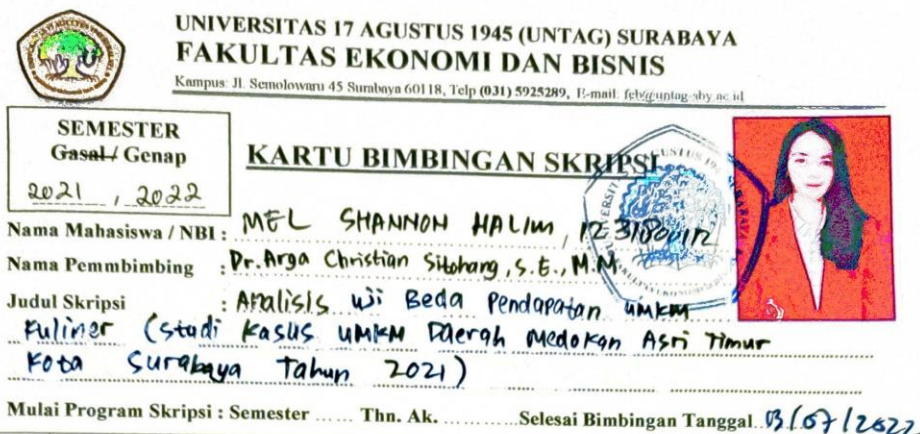 UNIVERSITAS 17 AGUSTUS 1945 (UNTAG) SURABAYA
FAKULTAS EKONOMI DAN BISNIS
Kampus: Jl. Semolowaru 45 Surabaya 60118, Telp (031) 5925289, E-mail: feb@untag-sby.ac.id
SEMESTER
Gasal / Genap
2021 , 2022
KARTU BIMBINGAN SKRIPSI
Nama Mahasiswa / NBI : MEL SHANNON HALIM, 1231800112
Nama Pemmbimbing : Dr. Arga Christian Sitohang, S.E., M.M
Judul Skripsi : Analisis Uji Beda Pendapatan UMKM
Kuliner (Studi Kasus UMKM Daerah Medokan Asri Timur
Kota Surabaya Tahun 2021)
Mulai Program Skripsi : Semester ...... Thn. Ak. ............Selesai Bimbingan Tanggal..03/07/2022